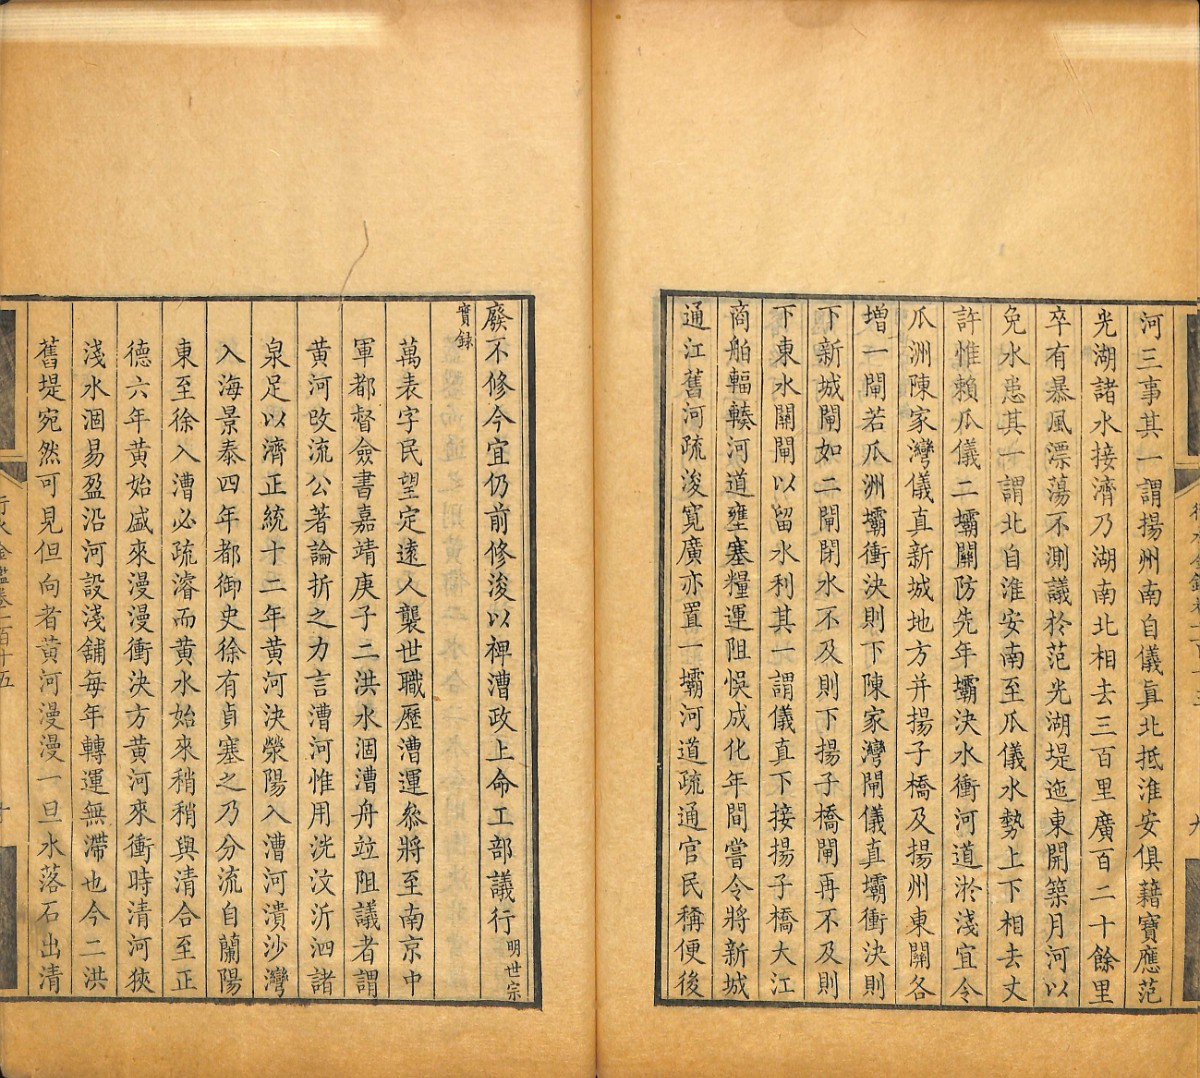 河三事其一謂揚州南自儀眞北抵淮安俱藉寶應范
光湖諸水接濟乃湖南北相去三百里廣百二十餘里
卒有暴風漂蕩不測議於范光湖堤迤東開築月河以
免水患其一謂北自淮安南至瓜儀水勢上下相去丈
許惟賴瓜儀二壩關防先年壩決水衝河道淤淺宜令
瓜洲陳家灣儀真新城地方并揚子橋及揚州東關各
增一閘若瓜洲壩衝決則下陳家灣閘儀真壩衝決則
下新城閘如二閘閉水不及則下揚子橋閘再不及則
下東水關閘以留水利其一謂儀真下接揚子橋大江
商舶輻輳河道壅塞糧運阻悞成化年間嘗令將新城
通江舊河疏浚寬廣亦置一壩河道疏通官民稱便後
廢不修今宜仍前修浚以裨漕政上命工部議行明世宗
實錄
萬表字民望定遠人襲世職歷漕運叅將至南京中
軍都督僉書嘉靖庚子二洪水涸漕舟竝阻議者謂
黄河改流公著論折之力言漕河惟用洸汶沂泗諸
泉足以濟正統十二年黄河決滎陽入漕河潰沙灣
入海景泰四年都御史徐有貞塞之乃分流自蘭陽
東至徐入漕必疏濬而黄水始來稍稍與清合至正
德六年黄始盛來漫漫衝決方黄河來衝時清河狹
淺水涸易盈沿河設淺舖每年轉運無滯也今二洪
舊堤宛然可見但向者黄河漫漫一旦水落石出清
行水金鑑卷一百十五